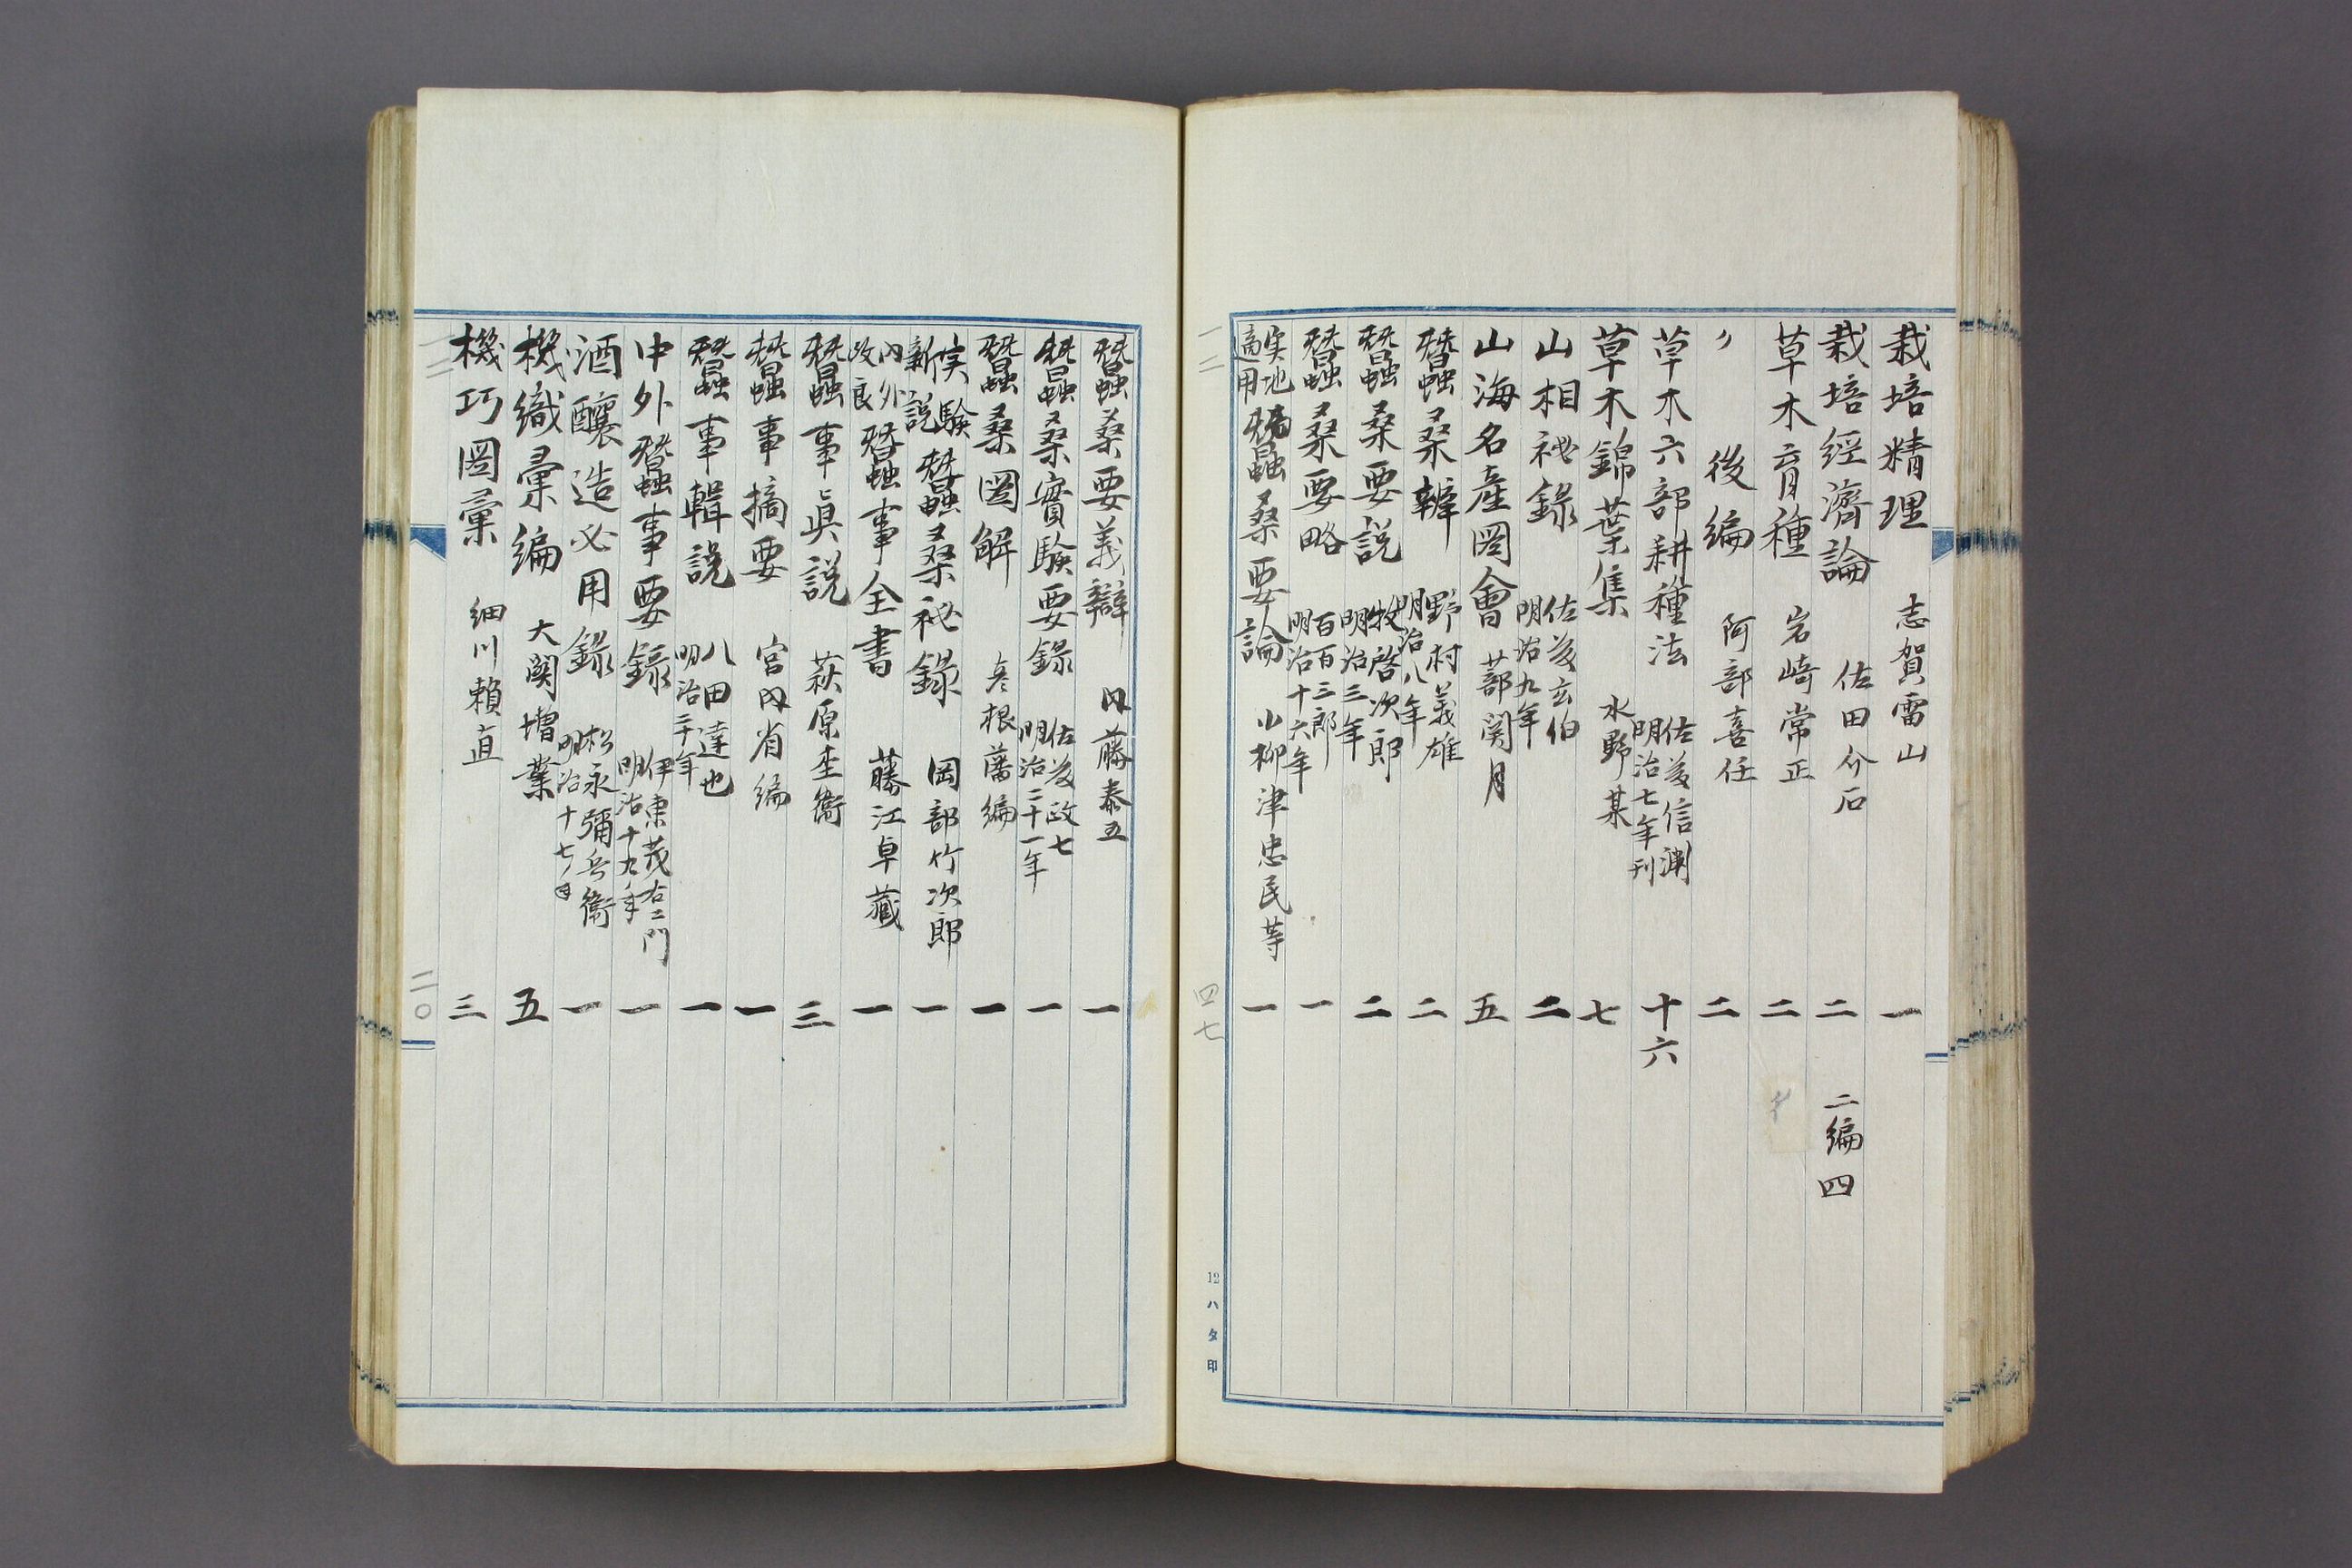 栽培精理 志賀雷山 一
栽培經濟論 佐田介石 二 二編四
草木育種 岩崎常正 二
〃 後編 阿部喜任 二
草木六部耕種法 佐藤信渊 明治七年刊 十六
草木錦葉集 水野某 七
山相祕錄 佐藤玄伯 明治九年 二
山海名產圖會 蔀関月 五
蠶桑辨 野村義雄 明治八年 二
蠶桑要説 牧啓次郎 明治三年 二
蠶桑要略 百百三郎 明治十六年 一
実地適用 蠶桑要論 小柳津忠民等 一
一二
四七
12ハタ印
蠶桑要義辯 内藤泰五 一
蠶桑實験要録 佐藤政七 明治二十一年 一
蠶桑圖解 彦根藩編 一
実験新説 蠶桑祕錄 岡部竹次郎 一
内外改良 蠶事全書 藤江卓藏 一
蠶事眞説 萩原圭衛 三
蠶事摘要 宮内省編 一
蠶事輯説 八田達也 明治二十年 一
中外蠶事要錄 伊東茂右エ門 明治十九年 一
酒釀造必用錄 松永彌兵衛 明治十七年 一
機織彙編 大関増業 五
機巧圖彙 細川賴直 三
一二
二〇